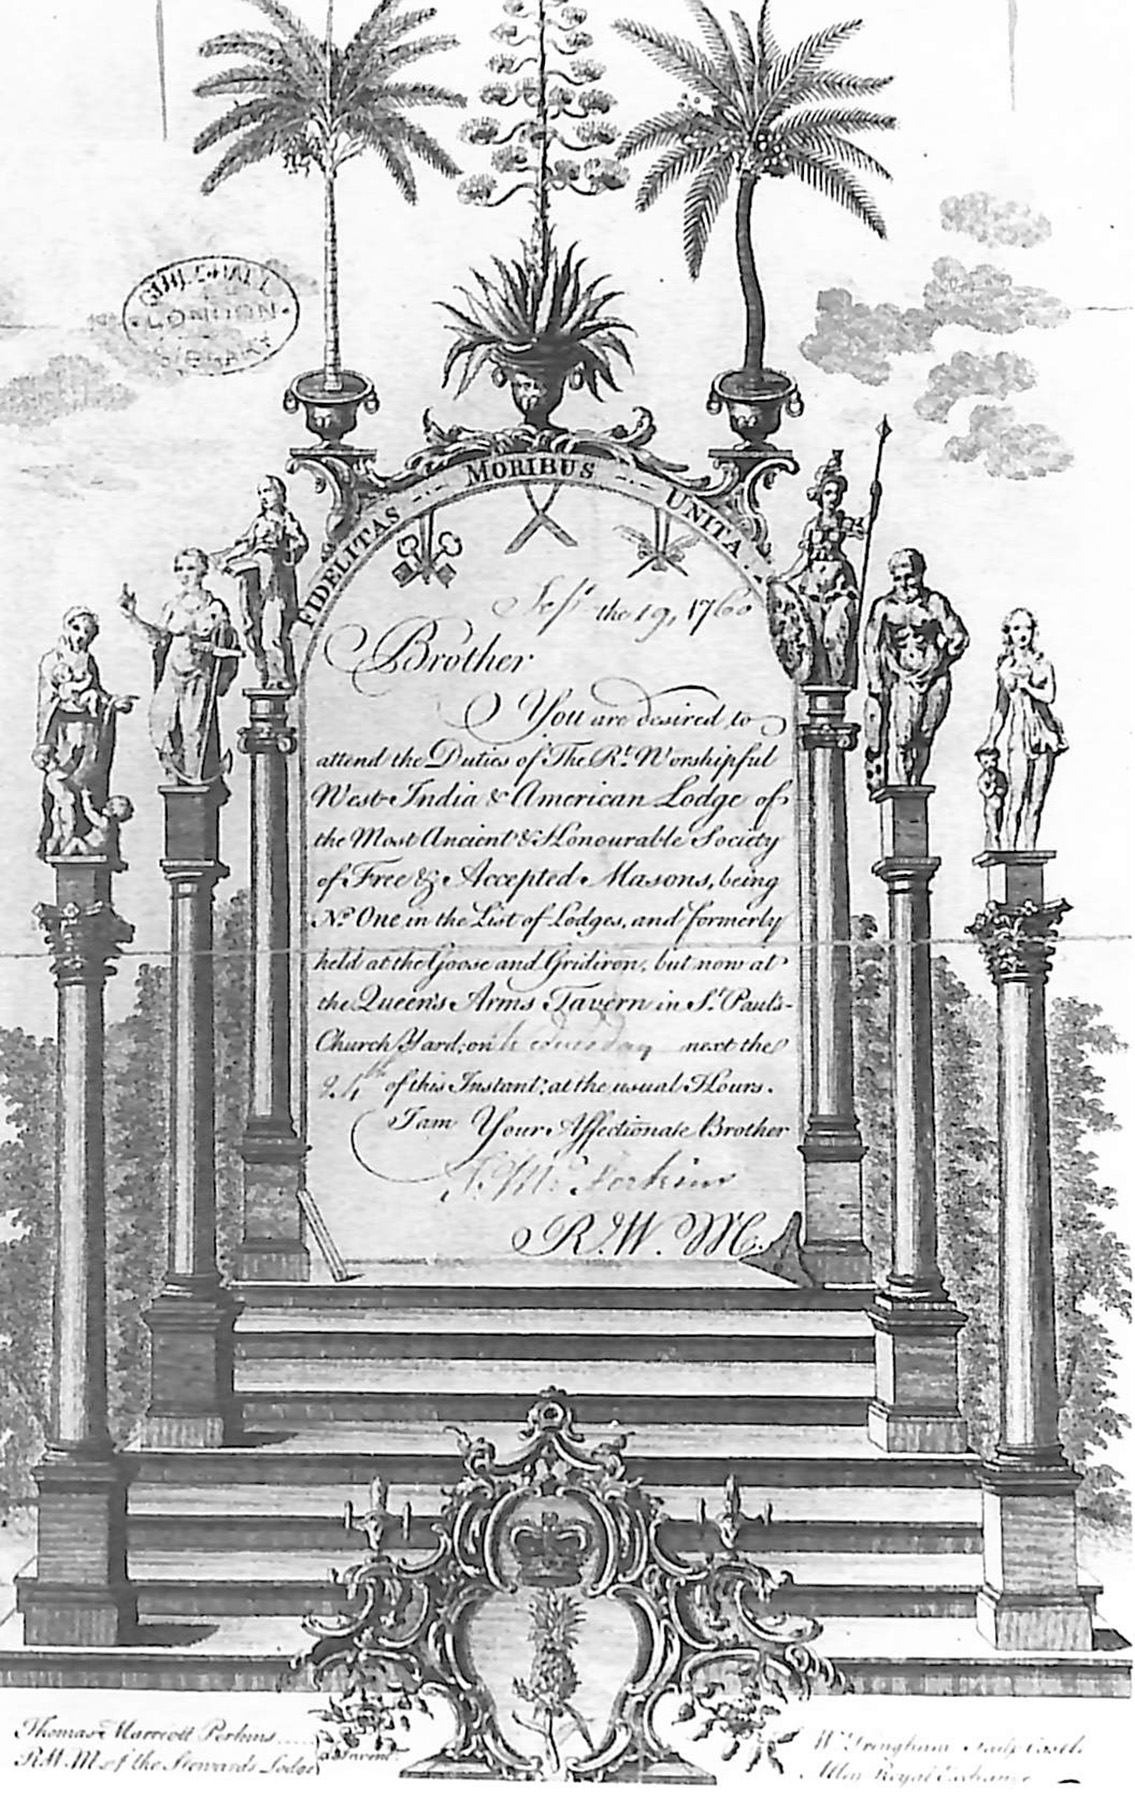 GUILDHALL
LONDON
LIBRARY
FIDELITAS MORIBUS UNITA
Sept. the 19, 1760
Brother
You are desired to
attend the Duties of The Rt. Worshipful
West-India & American Lodge of
the Most Ancient & Honourable Society
of Free & Accepted Masons, being
No. One in the List of Lodges, and formerly
held at the Goose and Gridiron, but now at
the Queen's Arms Tavern in St. Paul's-
Church Yard; on Wednesday next the
24th of this Instant; at the usual Hours.
I am Your Affectionate Brother
T. M. Perkins
R. W. M.
Thomas Marriott Perkins
R.W.M. of the Stewards Lodge Invent.
Wm. Tringham Castle
Alley Royal Exchange